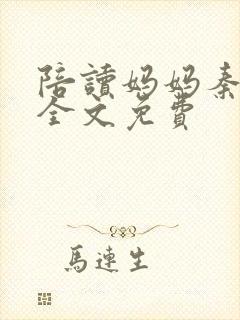 陪讀媽媽秦
全文免費
馬連生